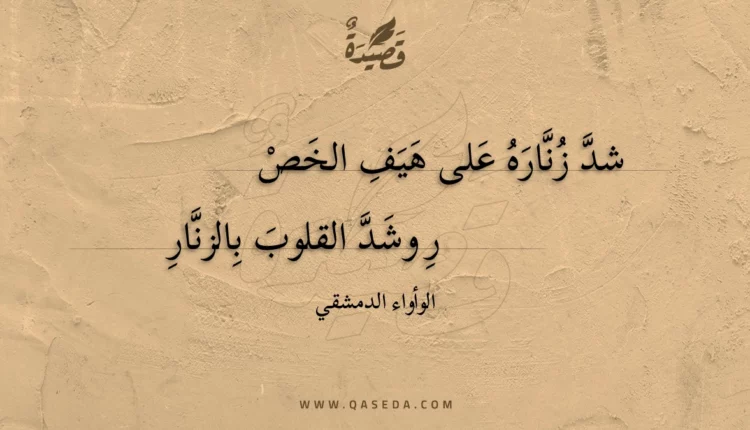 قَصِيدَةٌ
شدَّ زُنَّارَهُ عَلى هَيَفِ الخَصْ
رِ وشَدَّ القلوبَ بِالزنَّارِ
الوأواء الدمشقي
WWW.QASEDA.COM